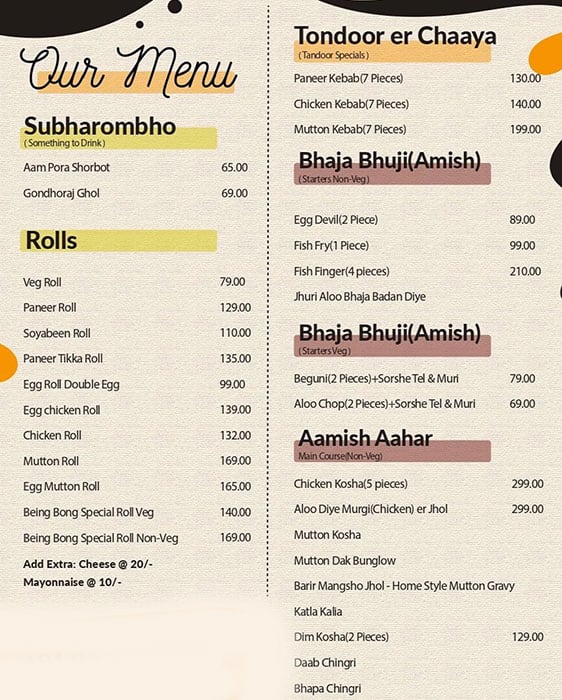 Our Menu
Subharombho
( Something to Drink )
Aam Pora Shorbot 65.00
Gondhoraj Ghol 69.00
Rolls
Veg Roll 79.00
Paneer Roll 129.00
Soyabeen Roll 110.00
Paneer Tikka Roll 135.00
Egg Roll Double Egg 99.00
Egg chicken Roll 139.00
Chicken Roll 132.00
Mutton Roll 169.00
Egg Mutton Roll 165.00
Being Bong Special Roll Veg 140.00
Being Bong Special Roll Non-Veg 169.00
Add Extra: Cheese @ 20/-
Mayonnaise @ 10/-
Tondoor er Chaaya
( Tandoor Specials )
Paneer Kebab(7 Pieces) 130.00
Chicken Kebab(7 Pieces) 140.00
Mutton Kebab(7 Pieces) 199.00
Bhaja Bhuji(Amish)
( Starters Non-Veg )
Egg Devil(2 Piece) 89.00
Fish Fry(1 Piece) 99.00
Fish Finger(4 pieces) 210.00
Jhuri Aloo Bhaja Badan Diye
Bhaja Bhuji(Amish)
( Starters Veg )
Beguni(2 Pieces)+Sorshe Tel & Muri 79.00
Aloo Chop(2 Pieces)+Sorshe Tel & Muri 69.00
Aamish Aahar
Main Course(Non-Veg)
Chicken Kosha(5 pieces) 299.00
Aloo Diye Murgi(Chicken) er Jhol 299.00
Mutton Kosha
Mutton Dak Bunglow
Barir Mangsho Jhol - Home Style Mutton Gravy
Katla Kalia
Dim Kosha(2 Pieces) 129.00
Daab Chingri
Bhapa Chingri